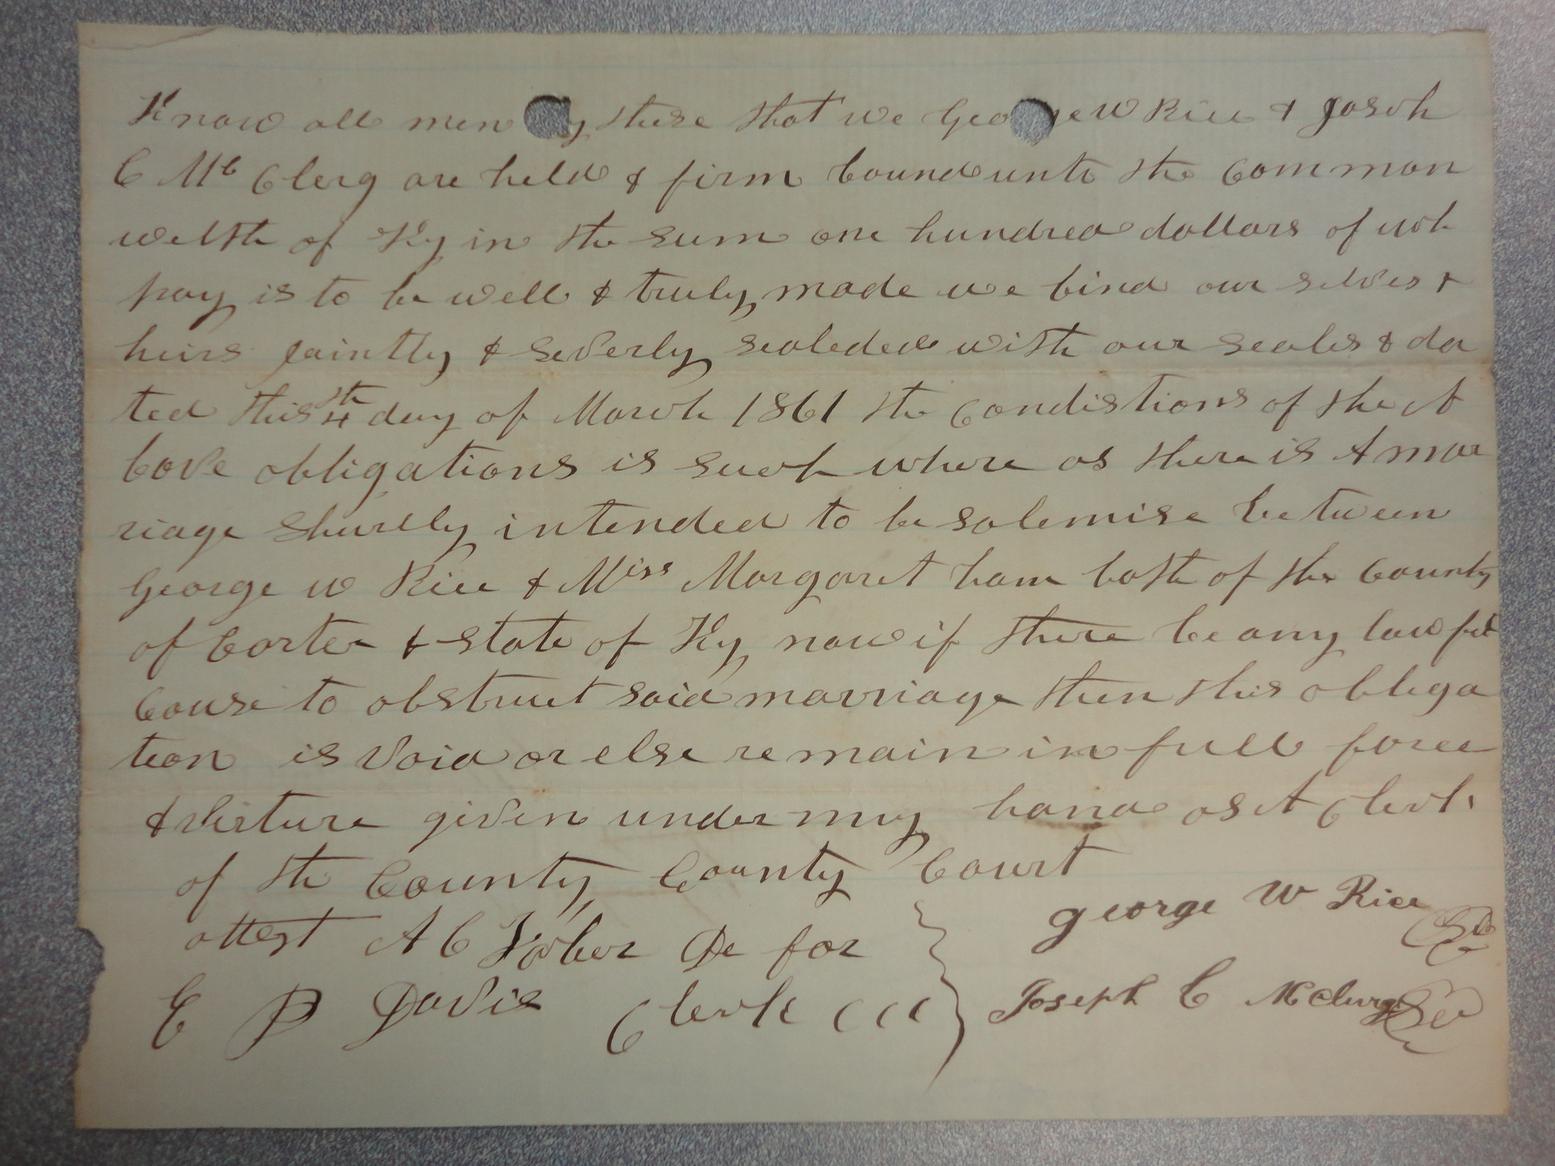 Know all men by these that we George W Rice & Josoh
C Mc Clerg are held & firm bound unto the Common
welth of Ky in the sum one hundred dollars of wh
pay is to be well & truly made we bind our selves &
heirs jaintly & severly sealeded with our seales & da
ted this 4th day of March 1861 the condistions of the A
bove obligations is such where as there is A mar
riage shurtly intended to be solemise between
George w Rice & Miss Margaret ham both of the County
of Carter & state of Ky now if there be any lawful
Cause to obstruct said marriage then this obliga
tion is void or else remain in full force
& virture given under my hand as A Clerk
of the County County Court
attest A C De for
E D Davis Clerk C C C
george W Rice
Joseph C McClurg